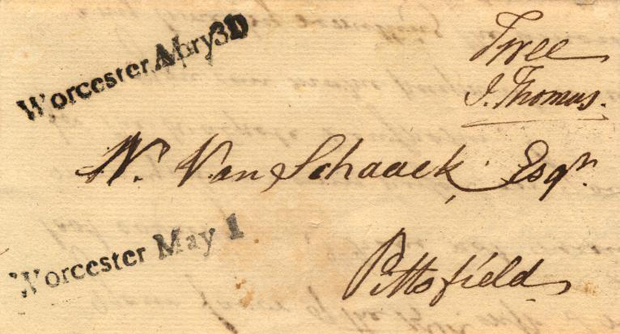 Free
I. Thomas.
Worcester
W. Van Schaack, Esqr.
Worcester May 1
Pittsfield